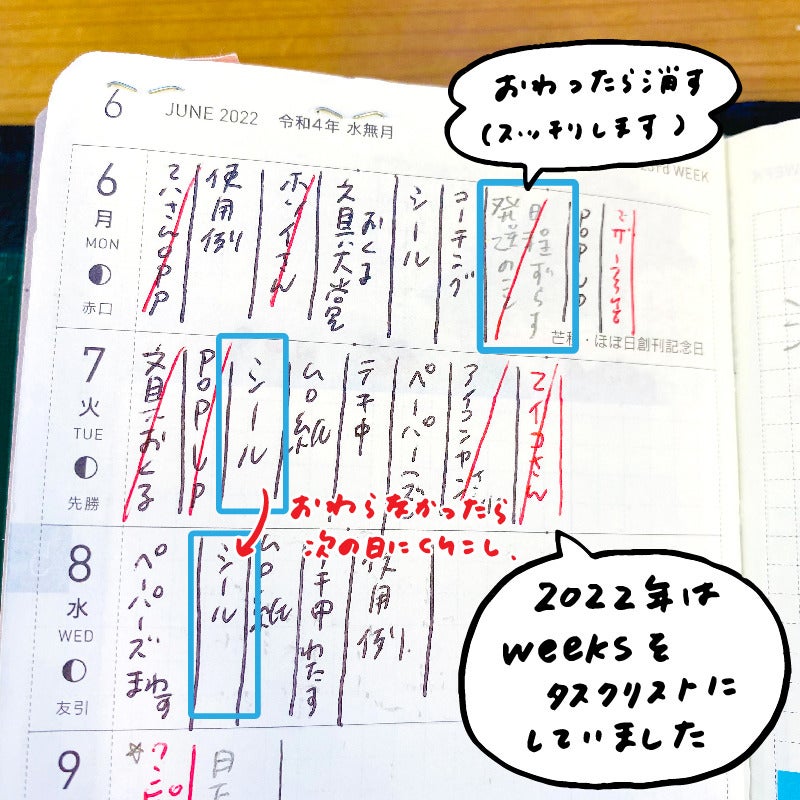 おわったら消す
(スッキリします)
6
JUNE 2022 令和4年 水無月
23rd WEEK
6
月
MON
赤口
使用例
ホンイさん
文具大賞
おくる
シール
コーチング
発送のこと
日程ずらす
POP UP
芒種・ほぼ日創刊記念日
7
火
TUE
先勝
文具おくる
POP UP
シール
ムロ紙
テキ中
ペーパーズ
おわらなかったら
次の日にくりこし.
8
水
WED
友引
ペーパーズまわす
シール
ムロ紙
テキ中 わたす
使用例
2022年は
weeksを
タスクリストに
していました
9